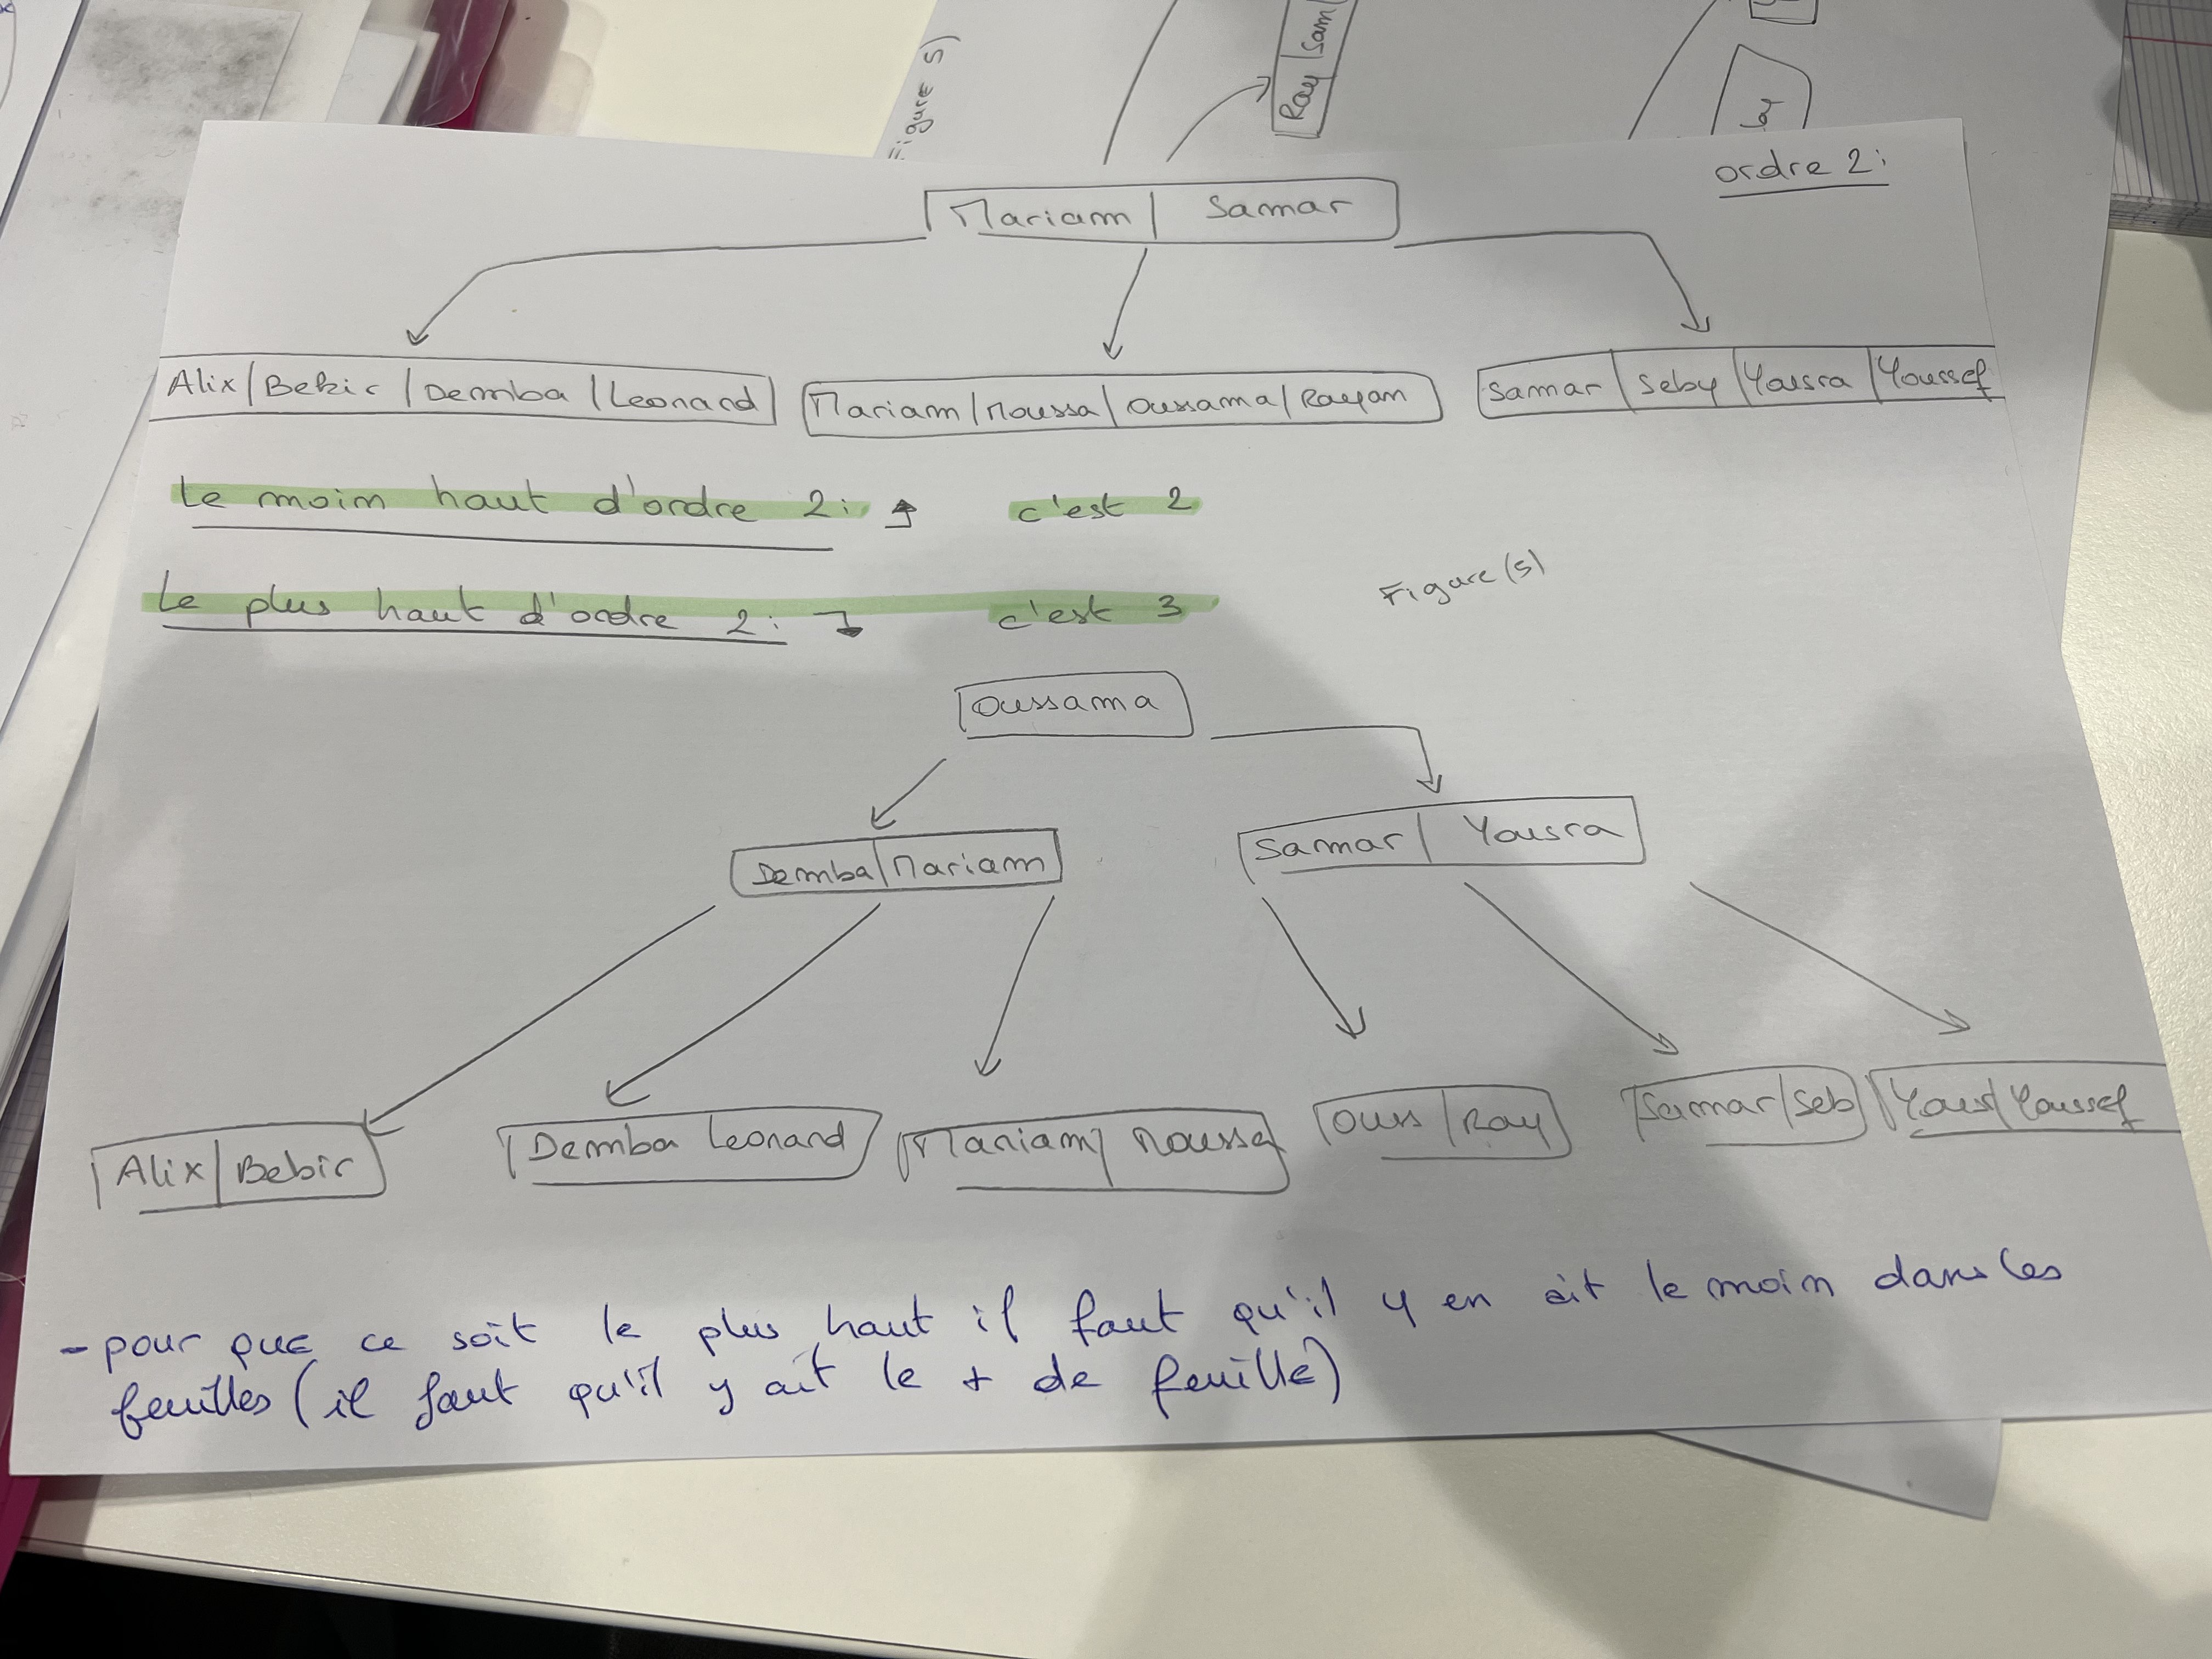 Figure 5)
Ray | Sam
ordre 2:
Mariam | Samar
Alix | Bekir | Demba | Leonard
Mariam | Moussa | Oussama | Rayan
Samar | Seby | Yousra | Youssef
Le moin haut d'ordre 2: c'est 2
Le plus haut d'ordre 2: c'est 3
Figure (5)
Oussama
Demba | Mariam
Samar | Yousra
Alix | Bebir
Demba Leonard
Mariam | Moussa
Ouss | Ray
Samar | Seb
Yous | Youssef
- pour que ce soit le plus haut il faut qu'il y en ait le moin dans les
feuilles (il faut qu'il y ait le + de feuille)